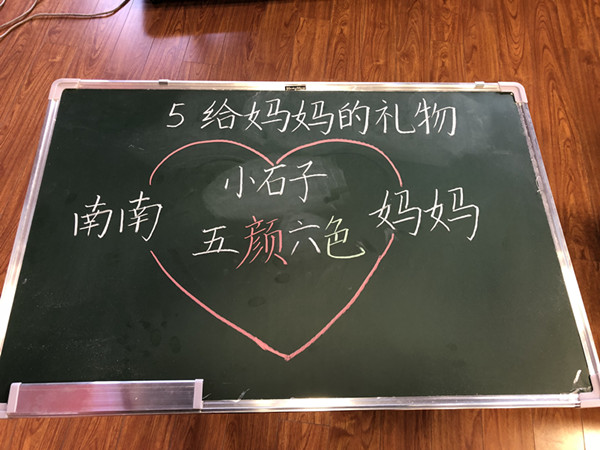 5 给妈妈的礼物
小石子
南南
五颜六色
妈妈